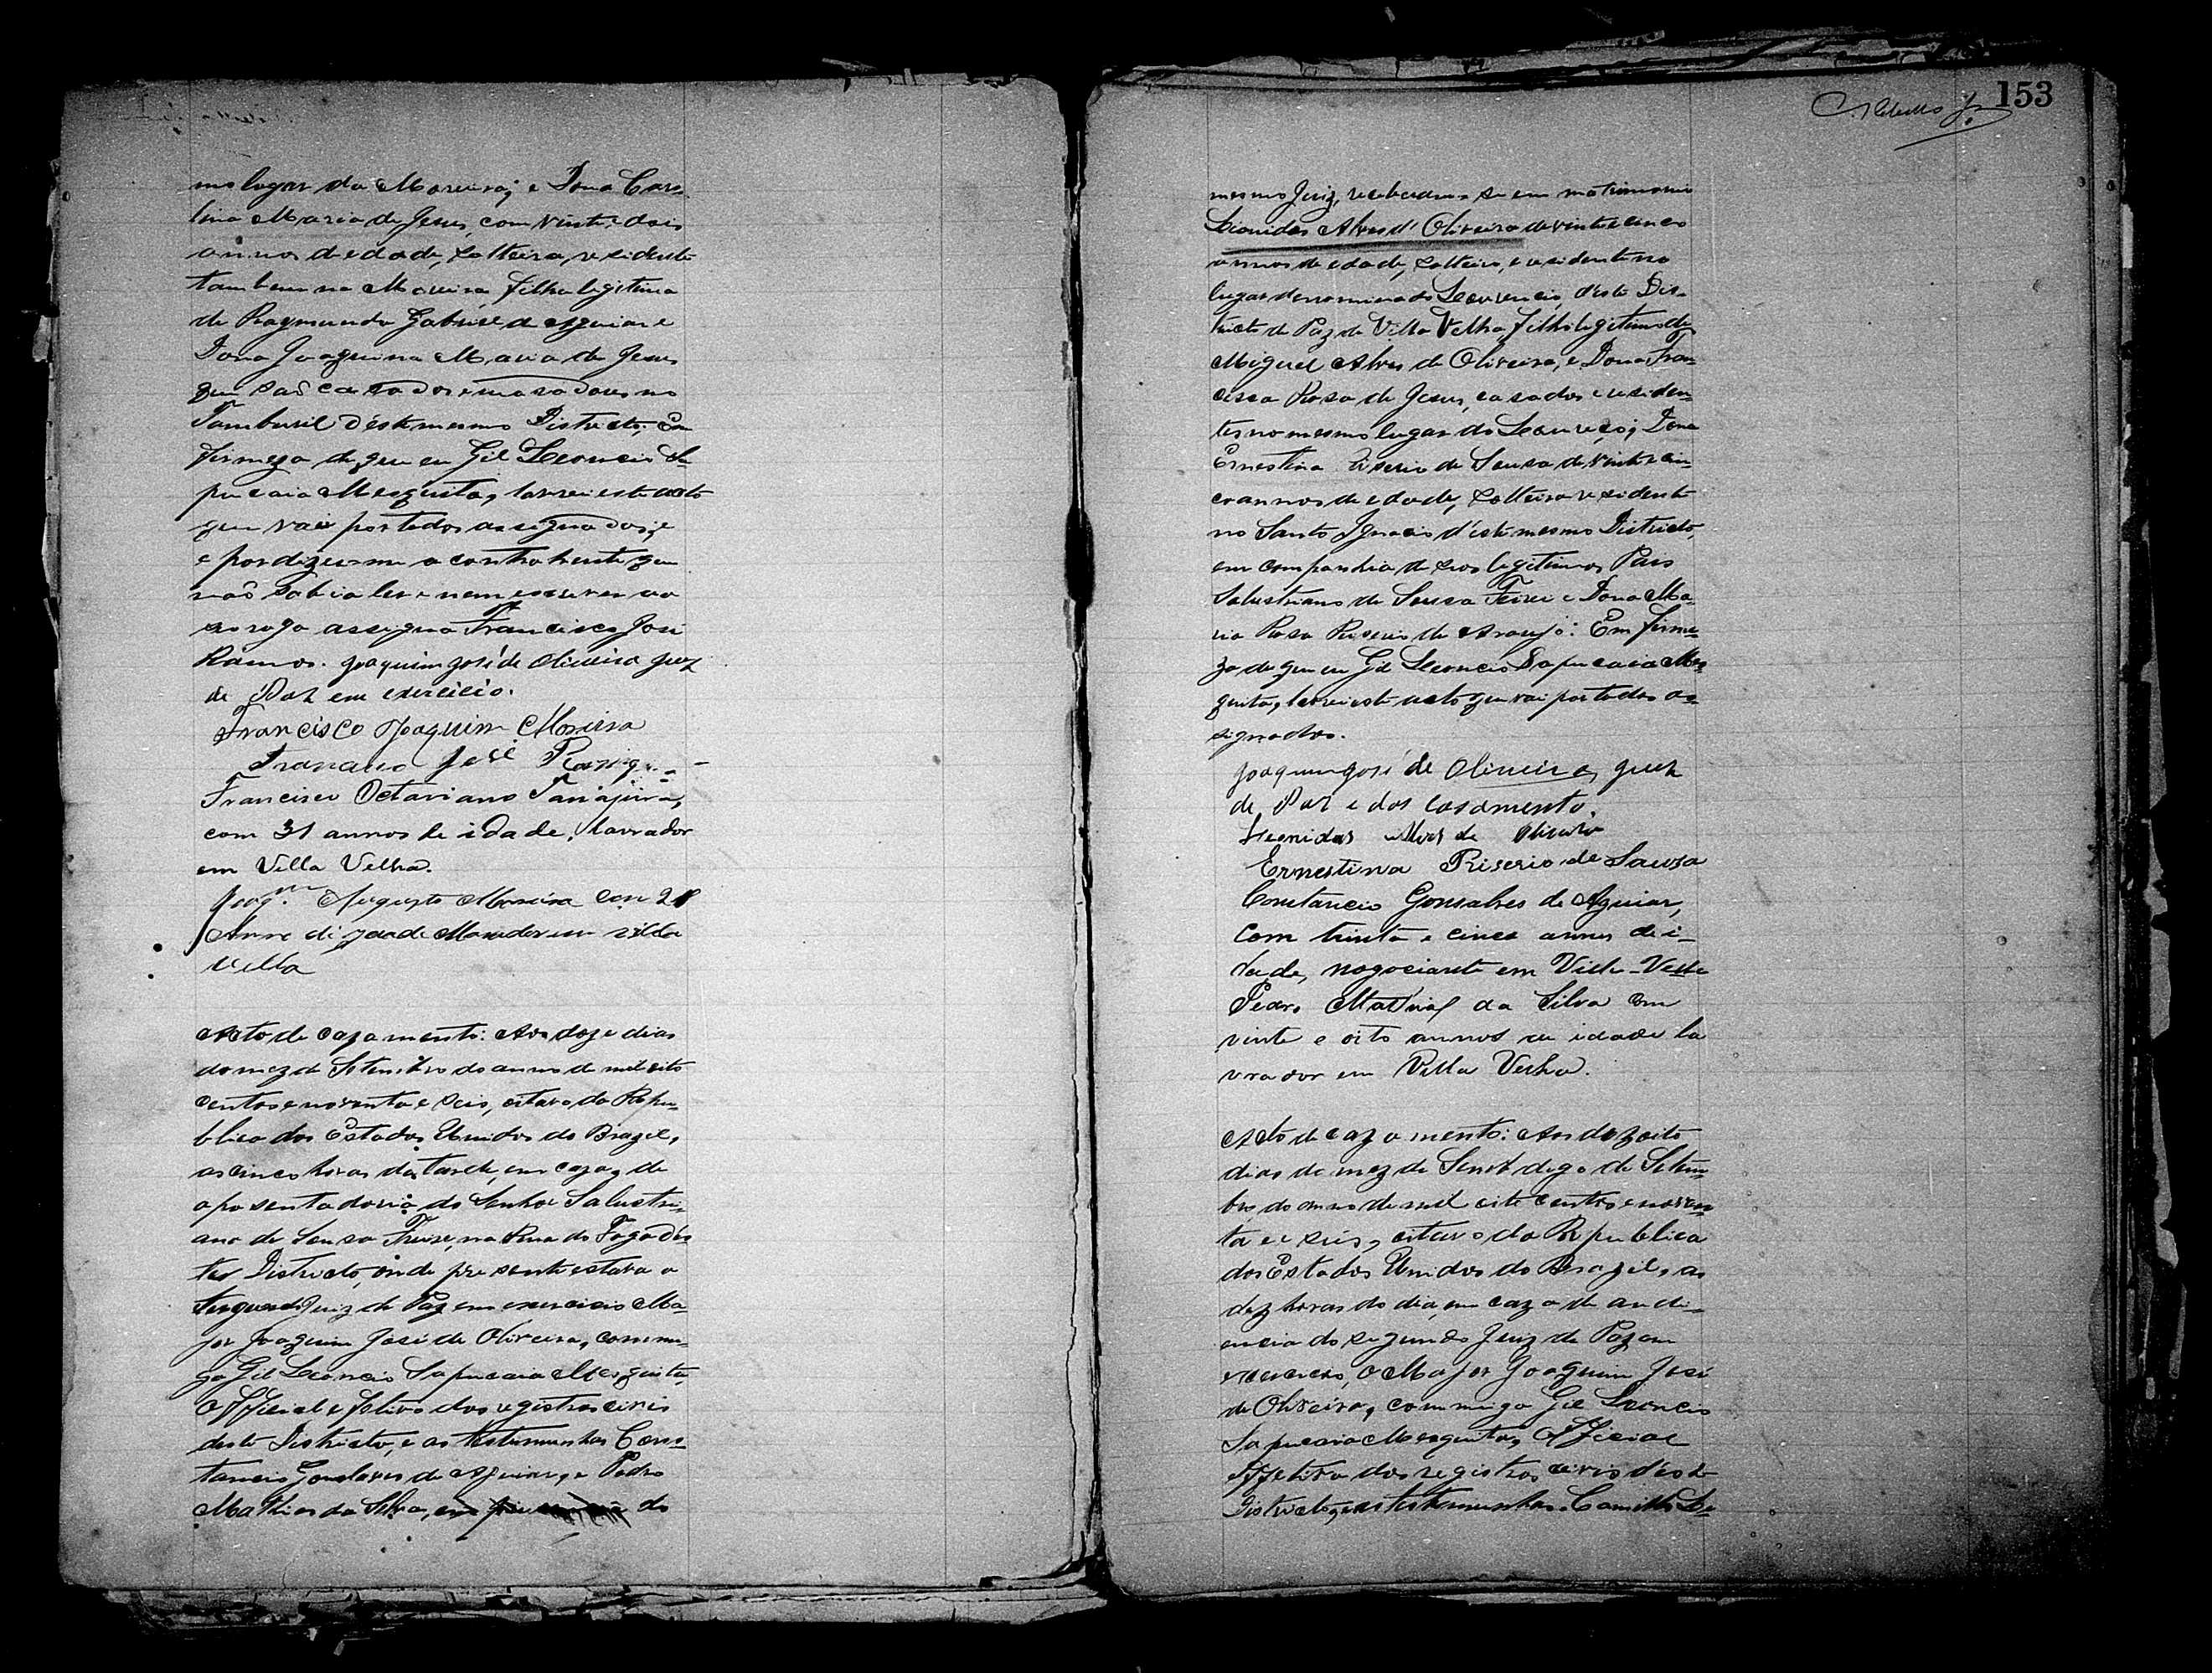 mo lugar da Moreira; e Dona Caro-
lina Maria de Jesus, com vinte e dois
annos de edade, solteira, residente
tambem na Moreira, filha legitima
de Raymundo Gabriel de Aguiar e
Dona Joaquina Maria de Jesus
que são casados e moradores no
Tamburil d'éste mesmo Districto; Em
firmeza de que eu Gil Leoncio Sa-
pucaia Mesquita, lavrei este acto
que vai por todos assignados, e
e por dizer-me a contrahente que
não sabia ler e nem escrever ao
seo rogo assigna Francisco José
Ramos. Joaquim José de Oliveira Juiz
de Paz em exercicio.
Francisco Joaquim Moreira
Francisco José
Francisco Octaviano Tanajura,
com 31 annos de idade, lavrador
em Villa Velha.
Joaqm. Augusto Moreira com 28
Anno di Morador em villa
velha
Acto de cazamento: Aos doze dias
do mez de Setembro do anno de mil oito
centos e noventa e seis, oitavo da Repu-
blica dos Estados Unidos do Brazil,
as cinco horas da tarde, em caza de
aposentadoria do Senhor Salustri-
ano de Sousa Freire, na Rua do Fogo dés-
te Districto, onde presente estava o
segundo Juiz de Paz em exercicio Ma-
jor Joaquim José de Oliveira, commi-
go Gil Leoncio Sapucaia Mesquita,
Official efetivo dos registros civis
deste Districto, e as testemunhas Cons-
tancio Gonçalves de Aguiar, e Pedro
Mathias da Silva, do
153
C. Rebello Jr.
mesmo Juiz, receberam-se em matrimonio
Leonidas Alves d'Oliveira de vinte e cinco
annos de edade, solteiro, e residente no
lugar denominado Lourenço, d'éste Dis-
tricto de Paz de Villa Velha, filho legitimo de
Miguel Alves de Oliveira, e Dona Fran-
cisca Rosa de Jesus, casados e residen-
tes no mesmo lugar do Lourenço; Dona
Ernestina Riserio de Sousa de vinte e cin-
co annos de edade, solteira residente
no Santo Ignacio d'éste mesmo Districto,
em companhia de seos legitimos Pais
Salustriano de Sousa Freire e Dona Ma-
ria Rosa Riserio de Araujo: Em firme-
za de que eu Gil Leoncio Sapucaia Mes-
quita, lavrei este acto que vai por todos as-
signados.
Joaquim José de Oliveira, Juiz
de Paz e dos casamento.
Leonidas Alves de Oliveira
Ernestina Riserio de Souza
Constancio Gonsalves de Aguiar,
Com trinta e cinco annos de i-
dade, nogociante em Villa-Velha
Pedro da Silva com
vinte e oito annos de idade la
vrador em Villa Velha.
Acto de cazamento: Aos dezoito
dias do mez de digo de Setem-
bro do anno de mil oito centos e noven-
ta e seis, oitavo da Republica
dos Estados Unidos do Brazil, as
dez horas do dia, em caza de audi-
encia do segundo Juiz de Paz em
exercicio, o Major Joaquim José
de Oliveira, commigo Gil Leoncio
Sapucaia Mesquita, Official
Effetivo dos registros civis déste
Districto, e as testemunhas Camillo Le-